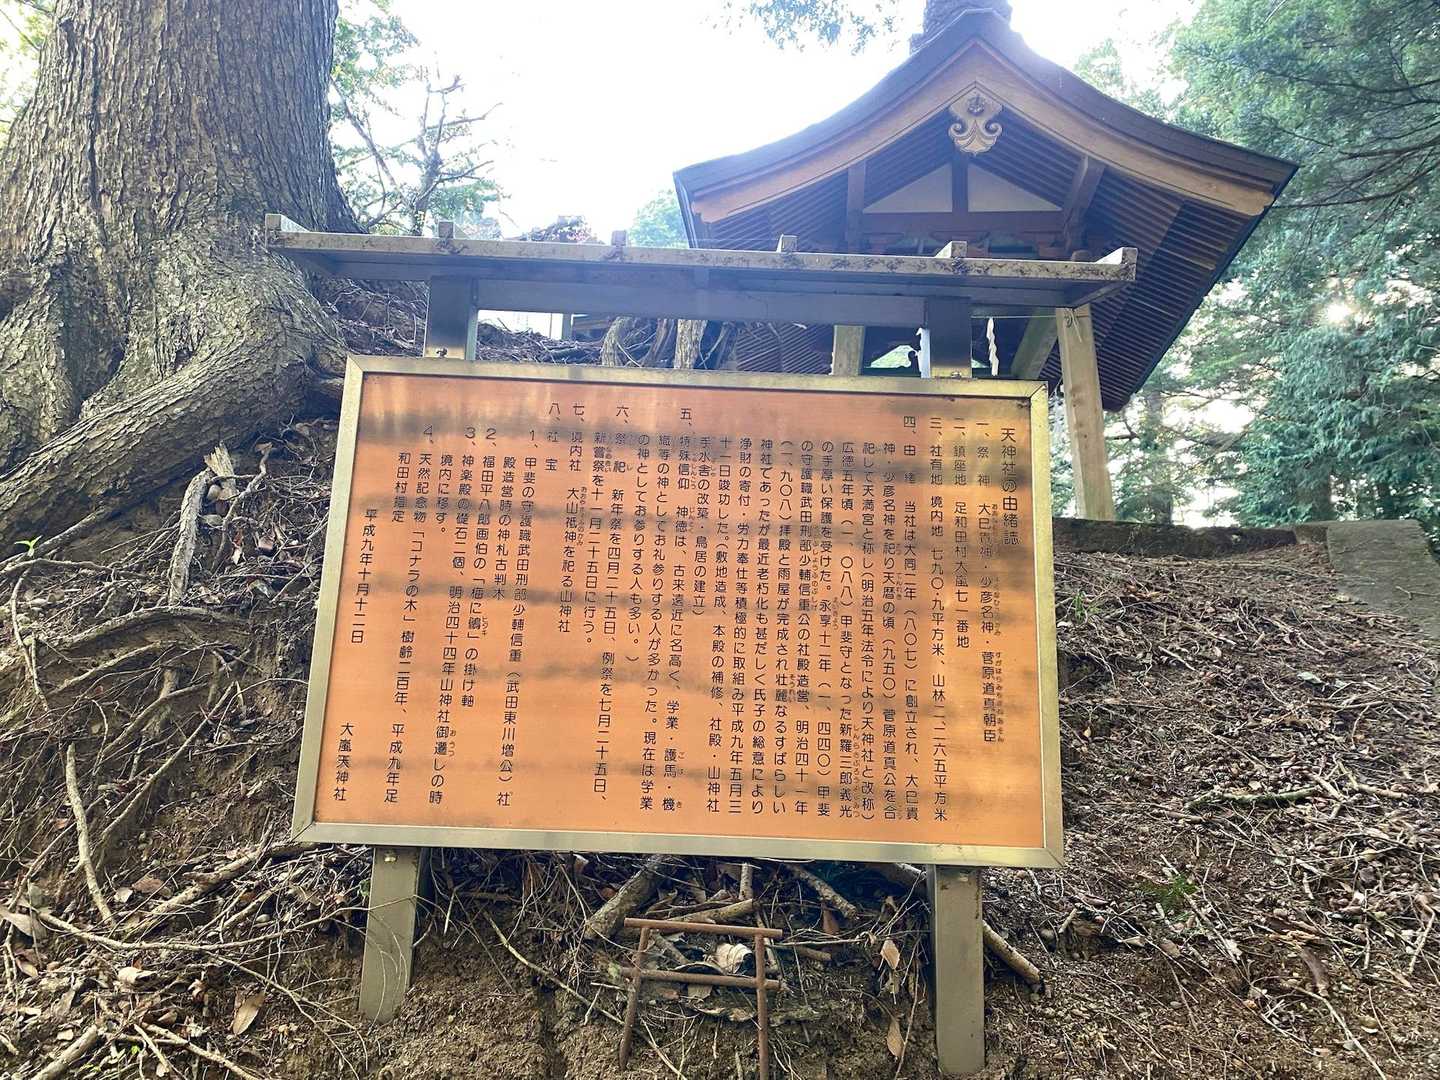 天神社の由緒誌
一、祭　神　大巳貴神・少彦名神・菅原道真朝臣
二、鎮座地　足和田村大嵐七一番地
三、社有地　境内地　七九〇・九平方米、山林二、二六五平方米
四、由　緒　当社は大同二年（八〇七）に創立され、大巳貴
神・少彦名神を祀り天暦の頃（九五〇）菅原道真公を合
祀して天満宮と称し（明治五年法令により天神社と改称）
広徳五年頃（一、〇八八）甲斐守となった新羅三郎義光
の手厚い保護を受けた。永享十二年（一、四四〇）甲斐
の守護職武田刑部少輔信重公の社殿造営、明治四十一年
（一、九〇八）拝殿と雨屋が完成され壮麗なるすばらしい
神社であったが最近老朽化も甚だしく氏子の総意により
浄財の寄付・労力奉仕等積極的に取組み平成九年五月三
十一日竣功した。（敷地造成、本殿の補修、社殿・山神社
手水舎の改築・鳥居の建立）
五、特殊信仰　神徳は、古来遠近に名高く、学業・護馬・機
織等の神としてお礼参りする人が多かった。現在は学業
の神としてお参りする人も多い。）
六、祭　祀　新年祭を四月二十五日、例祭を七月二十五日、
新嘗祭を十一月二十五日に行う。
七、境内社　大山祗神を祀る山神社
八、社　宝
1、甲斐の守護職武田刑部少輔信重（武田東川増公）社
殿造営時の神札古判木
2、福田平八郎画伯の「梅に鶲」の掛け軸
3、神楽殿の礎石二個、明治四十四年山神社御遷しの時
境内に移す。
4、天然記念物「コナラの木」樹齢二百年、平成九年足
和田村指定
平成九年十月十二日
大嵐天神社